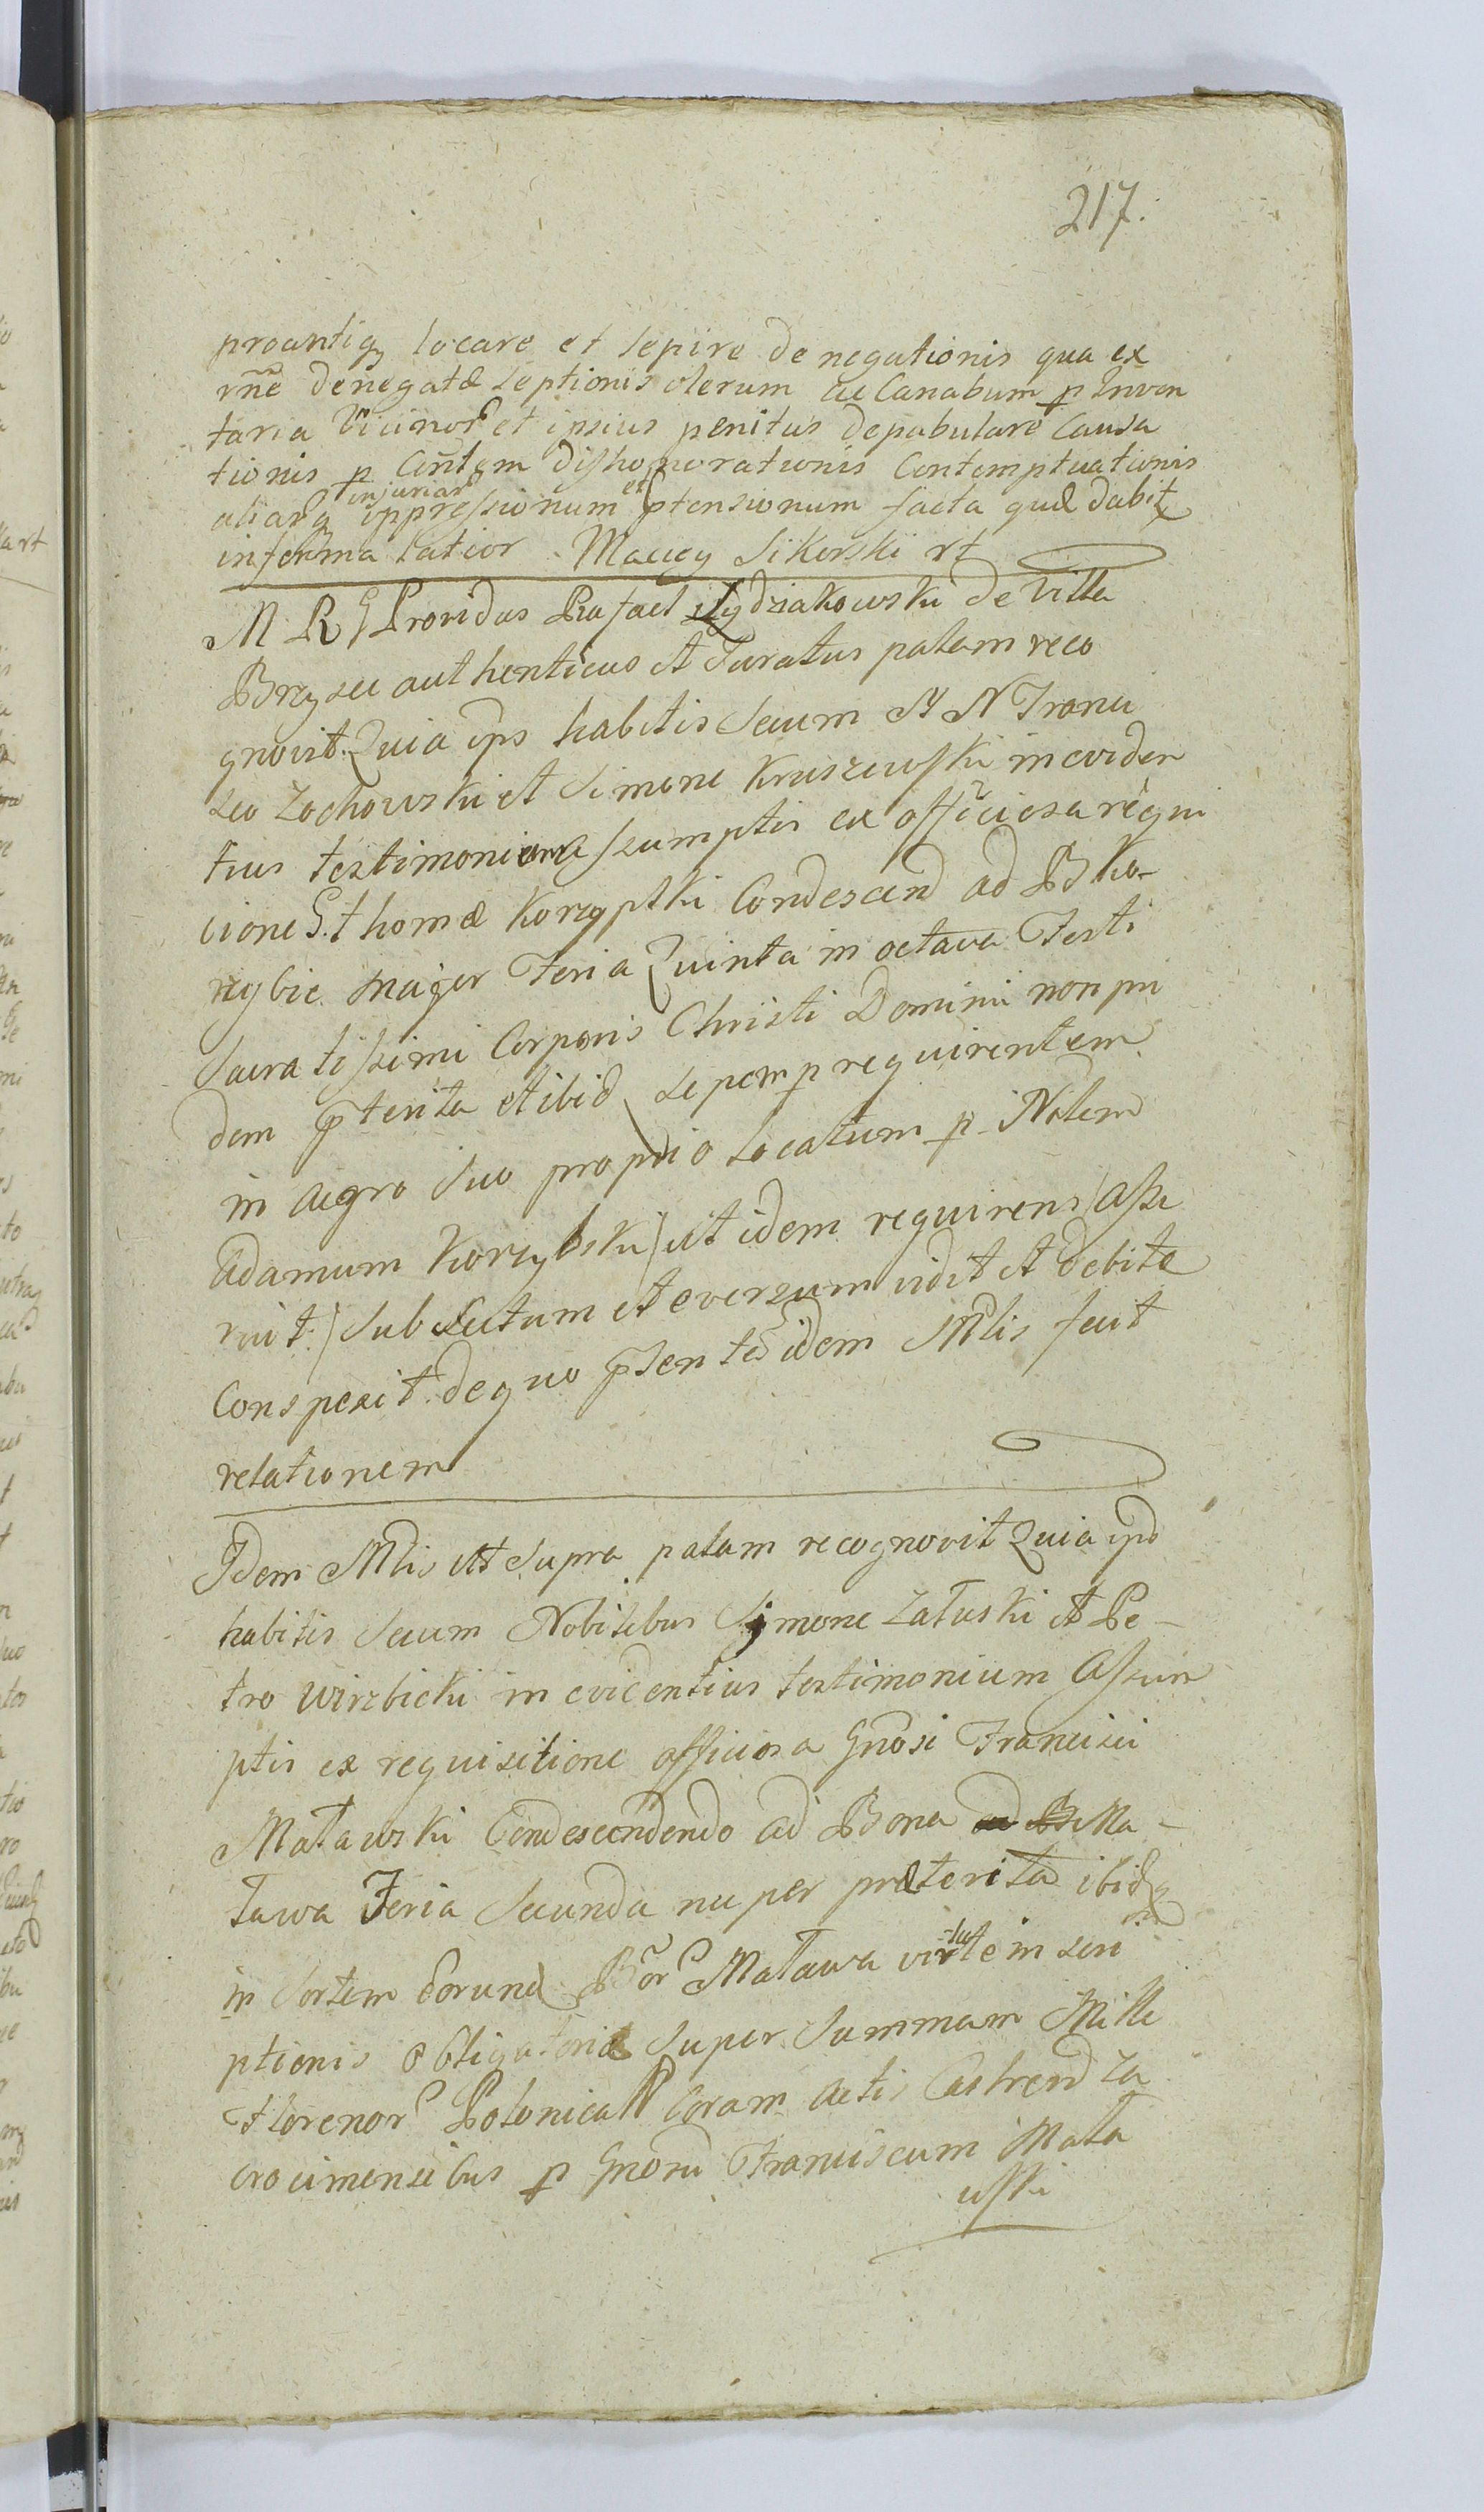 217.
proantiq locare et sepire denegationis qua ex
rñe denegatæ septionis olerum ac Canabum p Inven
taria Vicinor et ipsius penitus depabulare Causa
tionis p Cöntem dishonorationis Contemptuationis
aliarq injuriar oppressionum et ptensionum facta quæ dabit
informa latior Maciey Sikorski rt
M R G Providus Rafael Zydziakowski de Villa
Bryseu authenticus et Juratus palam reco
gnovit Quia ips habitis Secum N N Franci
sco Zochowski et Simone Kruszewski in eviden
tius testimonium assumptis ex officiosa requi
cione G. thomæ Korzypski Condescend ad B Ko-
rzybie major Feria Quinta in octava Festi
Sacratissimi Corporis Christi Domini non pri
dem pterita et ibid sepem p requirentem
in agro suo proprio locatum p Nolem
Adamum Korzybski ut idem requirens asse
ruit sub sectum et eversum vidit et debite
Conspexit de quo psentes idem Mlis fecit
relationem
Idem Mlis ut Supra palam recognovit Quia ips
habitis Secum Nobilibus Symone Załuski et Pe-
tro Wirzbicki in evidentius testimonium Assum
ptis ex requisitione officiosa Gnosi Francisci
Matawski Condescendendo ad Bona ad B Ma-
tawa Feria Secunda nuper præterita ibidq
in Sortem eorund Bor Matawa virtute in scri
ptionis obligatoriæ Super Summam Mille
Florenor Polonicall Coram Actis Castrend Za
crocimensibus p Gnorū Franciscum Mata
wski